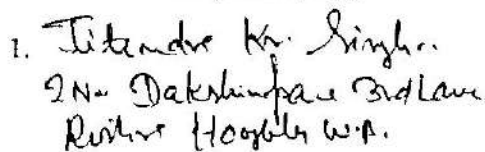 1. Jitendra Kr. Singh..
2No Dakshinpara 3rd Lane
Rishra Hooghly W.B.